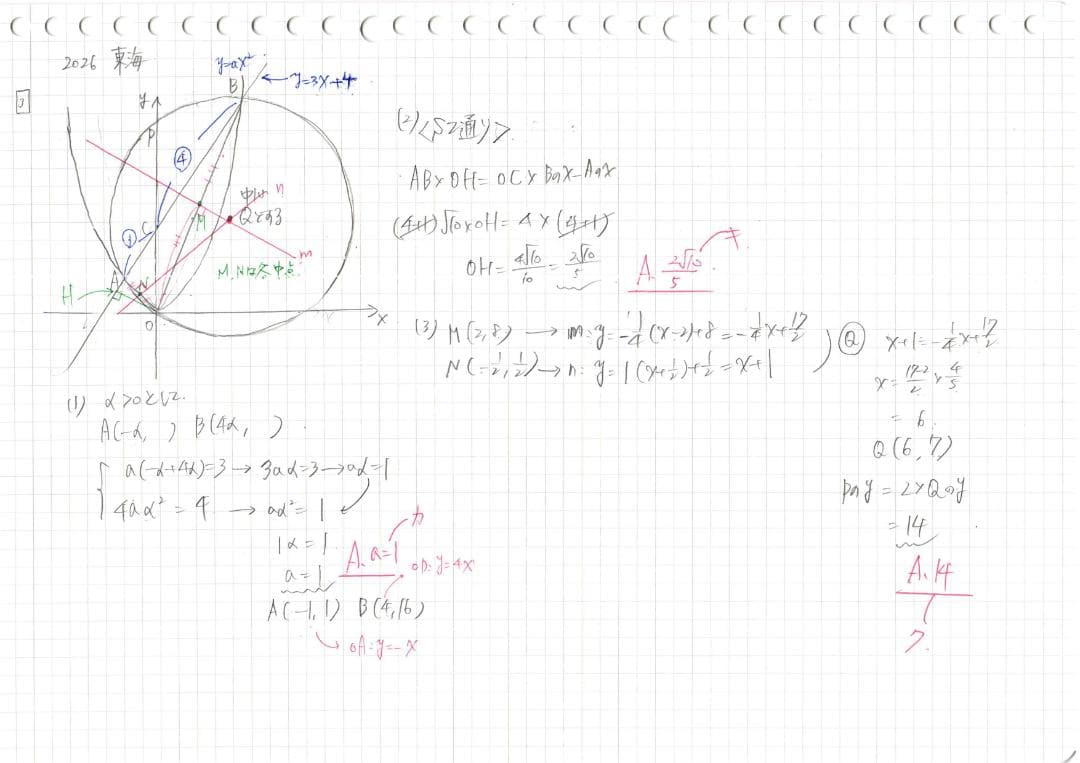 2026 東海
3
y=ax²
B
← y=3x+4
y
P
④
C
①
A
N
M
中心
Qとする
n
m
M,Nは各中点
H
O
x
(1) α>0として.
A(-α, ) B(4α, )
a(-α+4α)=3→3aα=3→aα=1
4aα²=4 → aα²=1
1α=1
a=1
A. a=1
カ
A(-1,1) B(4,16)
OB:y=4x
OA:y=-x
(2)
AB×OH=OC×Bのx-Aのx
(4+1)√10×OH=4×(4+1)
OH=4√10/10=2√10/5
A. 2√10/5
キ
(3) M(2,8) → m:y=-1/4(x-2)+8=-1/4x+17/2
N(-1/2,1/2)→n:y=1(x+1/2)+1/2=x+1
Q
x+1=-1/4x+17/2
x=17-2/2×4/5
=6
Q(6,7)
Pのy=2×Qのy
=14
A.14
ク